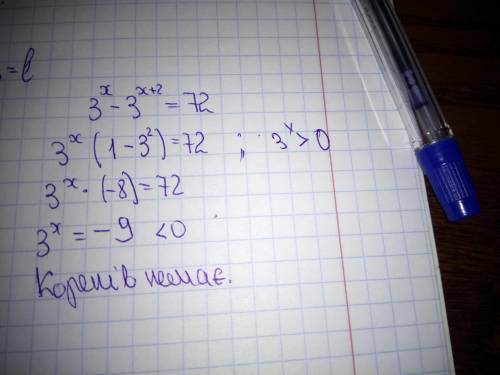 =l
3^x - 3^{x+2} = 72
3^x (1 - 3^2) = 72 ; 3^x > 0
3^x · (-8) = 72
3^x = -9 < 0
Коренів немає.